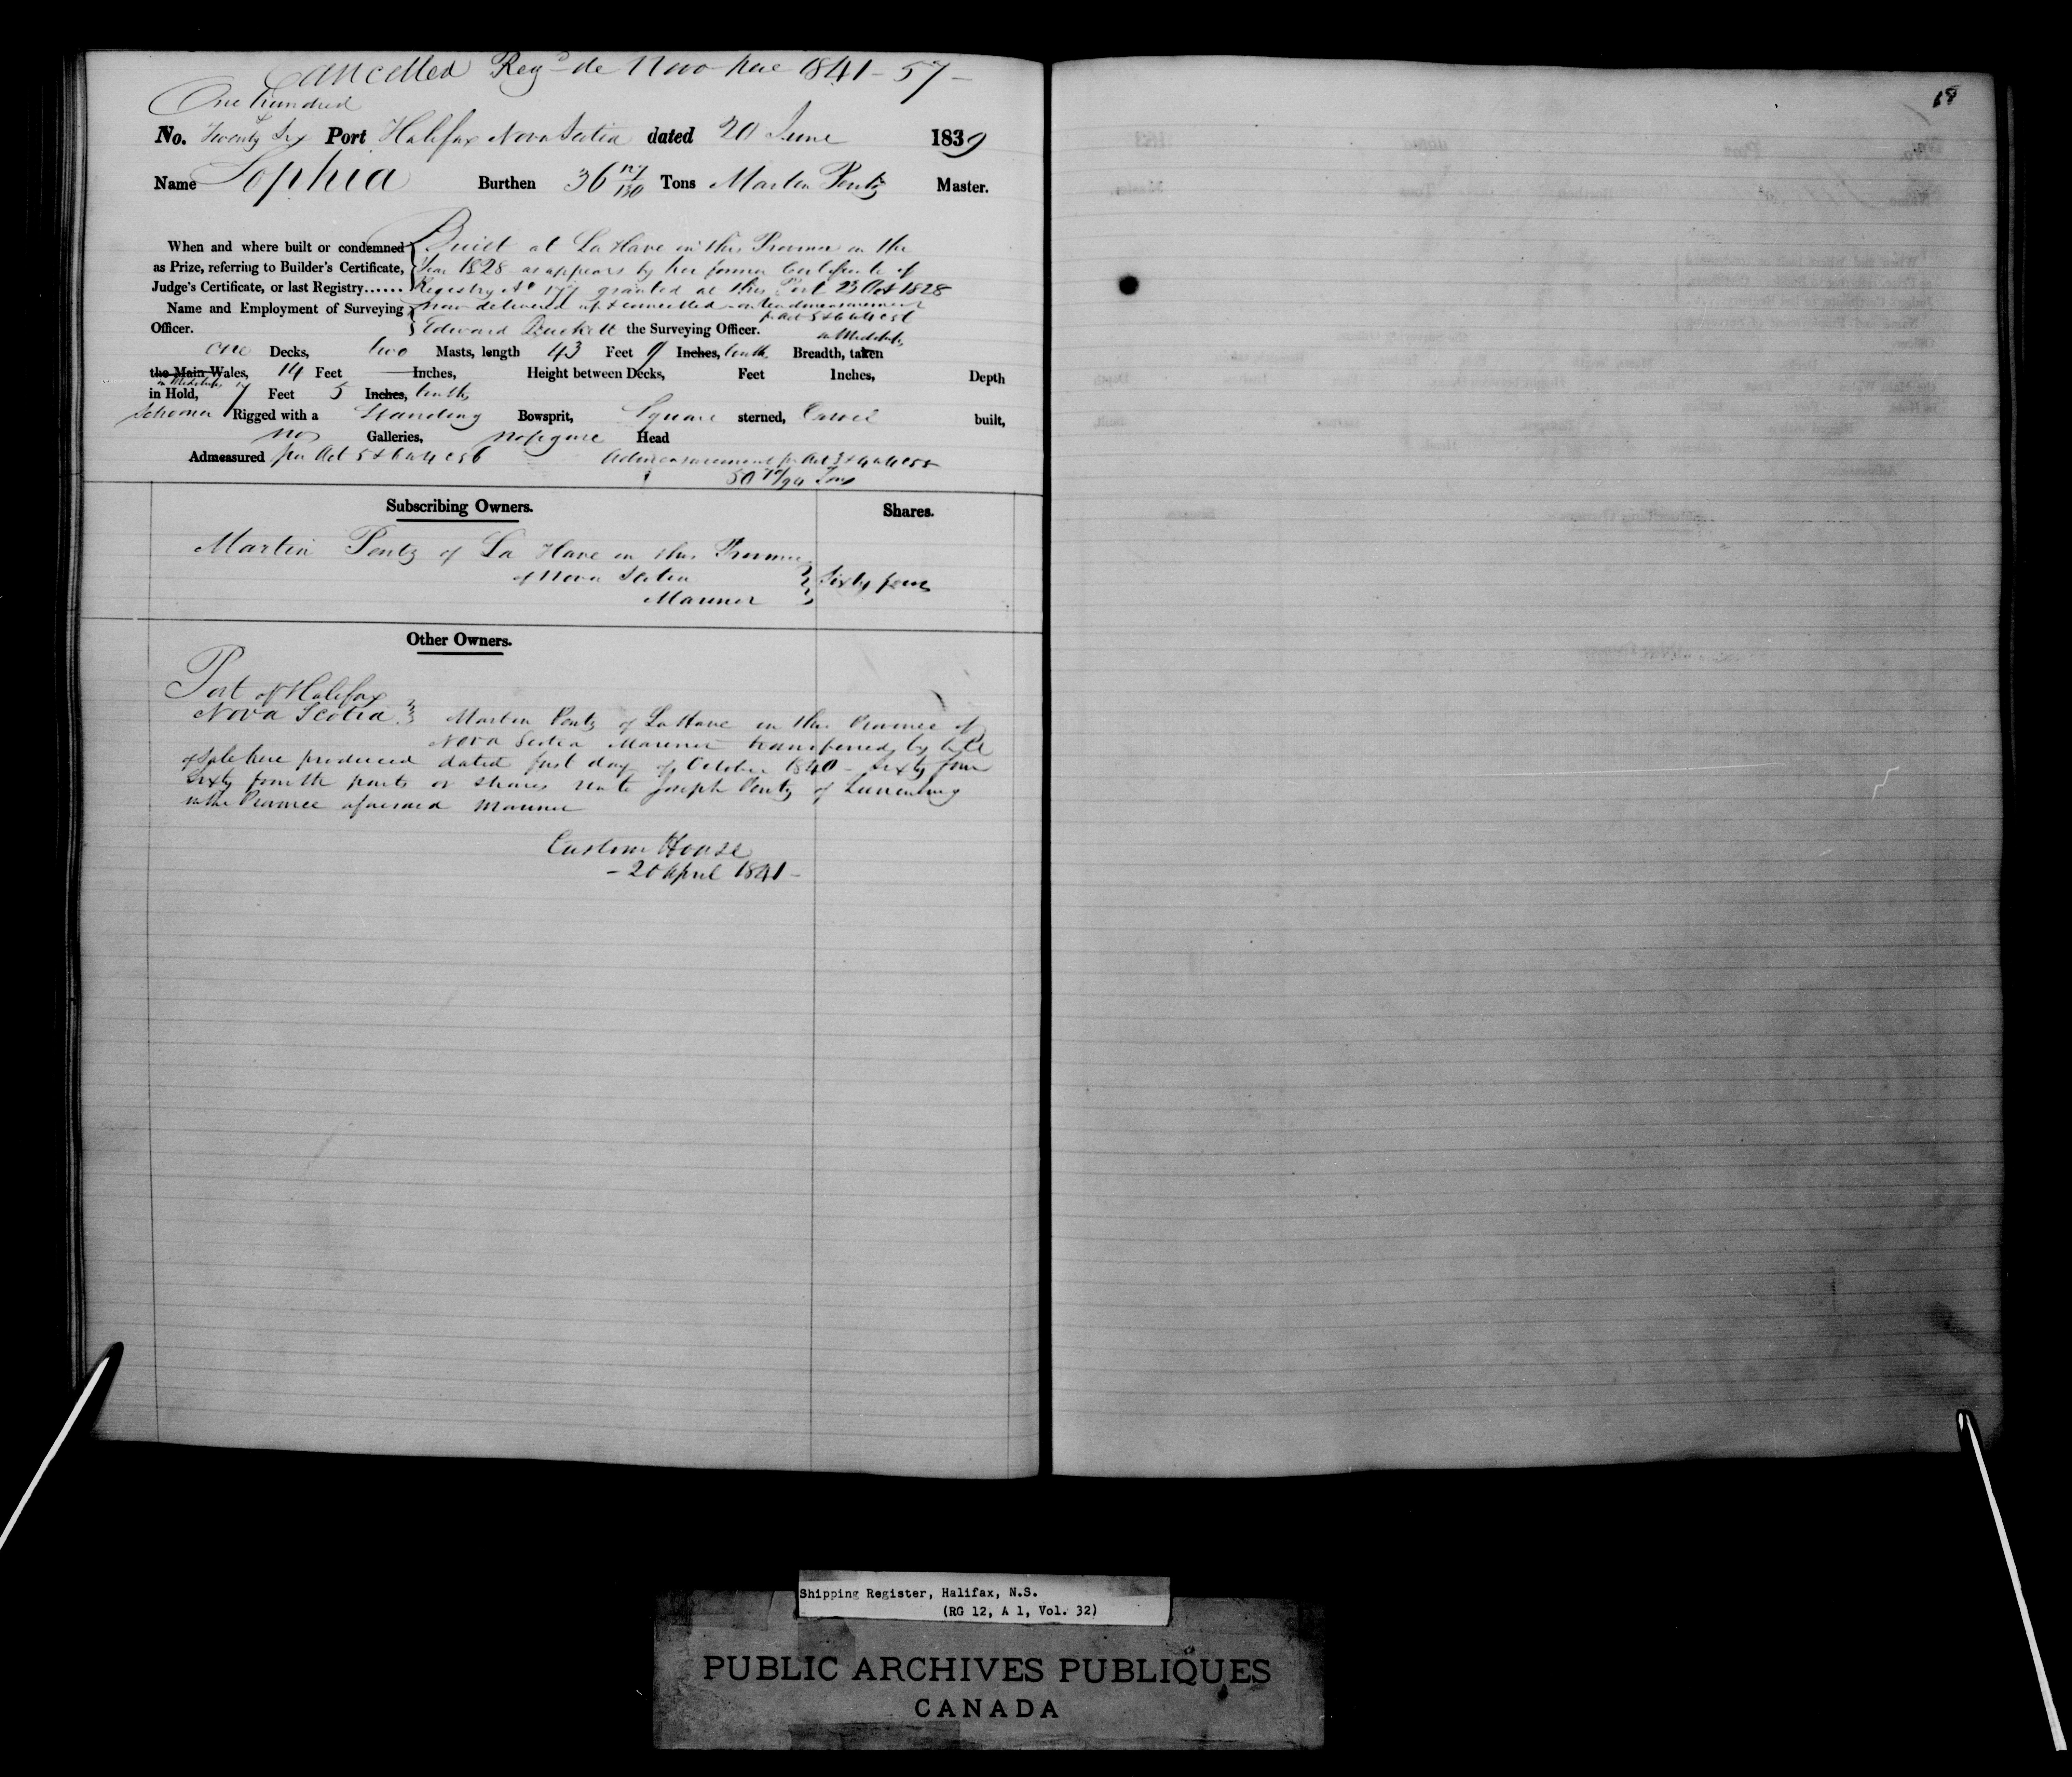 Cancelled Regd de Novo here 1841 - 57 -
68
One hundred
No. Twenty Six Port Halifax Nova Scotia dated 20 June 1839
Name Sophia Burthen 36 Tons Martin Pentz Master.
When and where built or condemned Built at La Have in this Province in the
as Prize, referring to Builder's Certificate, Year 1828 as appears by her former Certificate of
Judge's Certificate, or last Registry...... Registry No granted at this Port 23 Oct 1828
Name and Employment of Surveying now delivered up & cancelled on
Officer. Edward the Surveying Officer.
in Midships
one Decks, two Masts, length 43 Feet 9 Inches, tenths Breadth, taken
the Main Wales, 14 Feet Inches, Height between Decks, Feet Inches, Depth
in Midships
in Hold, 7 Feet 5 Inches, tenths
Schooner Rigged with a Standing Bowsprit, Square sterned, Carvel built,
no Galleries, no figure Head
Admeasured per Act 5 & 6 W 4 c 56 Admeasurement pr Act 3 & 4 W 4 c 55
50 /94 Tons
Subscribing Owners. Shares.
Martin Pentz of La Have in this Province
of Nova Scotia Sixty four
Mariner
Other Owners.
Port of Halifax
Nova Scotia Martin Pentz of La Have in the Province of
Nova Scotia Mariner transferred by bill
of Sale here produced dated first day of October 1840 - Sixty four
Sixty fourth parts or shares unto Joseph Pentz of Lunenburg
in the Province aforesaid Mariner
Custom House
- 20 April 1841 -
Shipping Register, Halifax, N.S.
(RG 12, A 1, Vol. 32)
PUBLIC ARCHIVES PUBLIQUES
CANADA